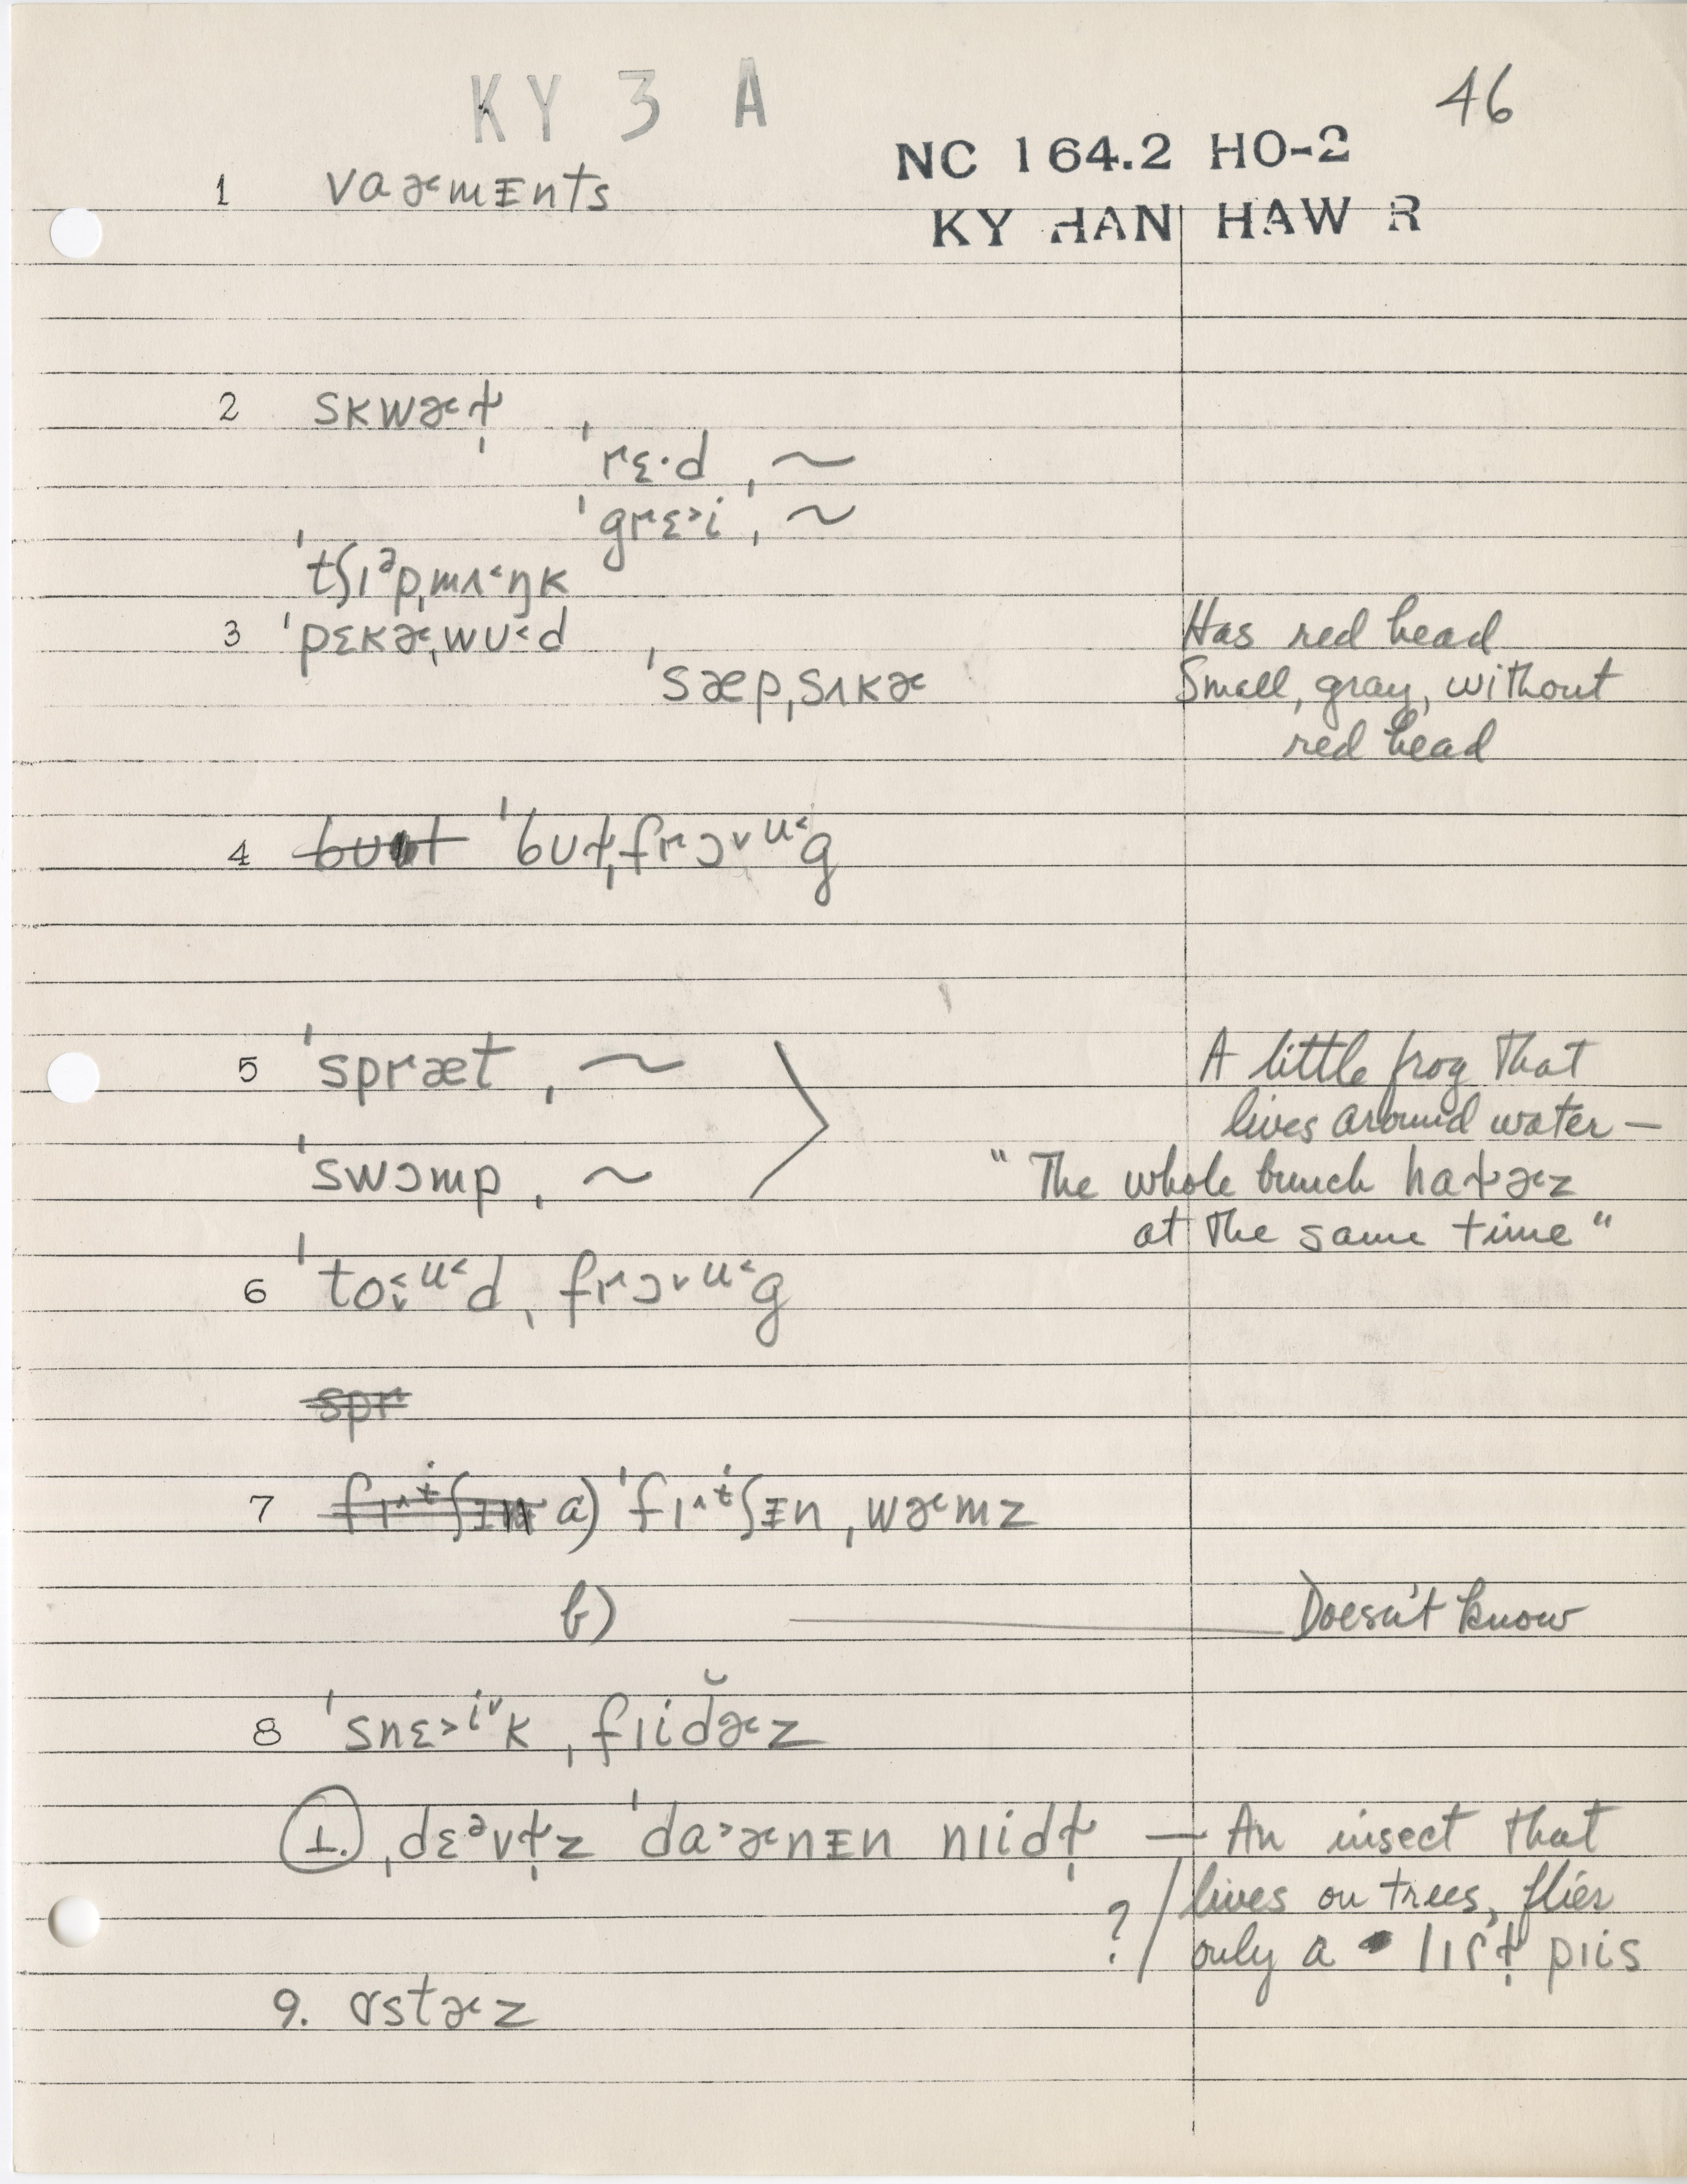 KY 3 A
46
NC 164.2 HO-2
KY HAN HAW R
1 vaɚmᵻnts
2 skwɚɫ̩
ˈrɛ·d ˌ~
ˈgrɛ˃i ˌ~
ˈtʃɪᵊpˌmʌ˂ŋk
3 ˈpɛkɚˌwʊ˂d Has red head
ˈsæpˌsʌkɚ Small, gray, without
red head
4 ˈbʊɫˌfrɔ˅ᵘ˂g
5 ˈspræt ˌ~ A little frog that
lives around water –
ˈswɔmp ˌ~ "The whole bunch haɫɚz
at the same time"
6 ˈto˂˅ᵘ˂d ˌfrɔ˅ᵘ˂g
spr
7 fɪ^ᵗʃᵻn a) ˈfɪ^ᵗʃᵻn ˌwɚmz
b) Doesn't know
8 ˈsnɛ˃ⁱ˅k ˌfɪid̆ɚz
⊥. ˌdɛᵊvɫ̩z ˈda˃ɚnᵻn nɪidɫ̩ — An insect that
? / lives on trees, flies
only a lɪɾɫ̩ pɪis
9. ɤstɚz